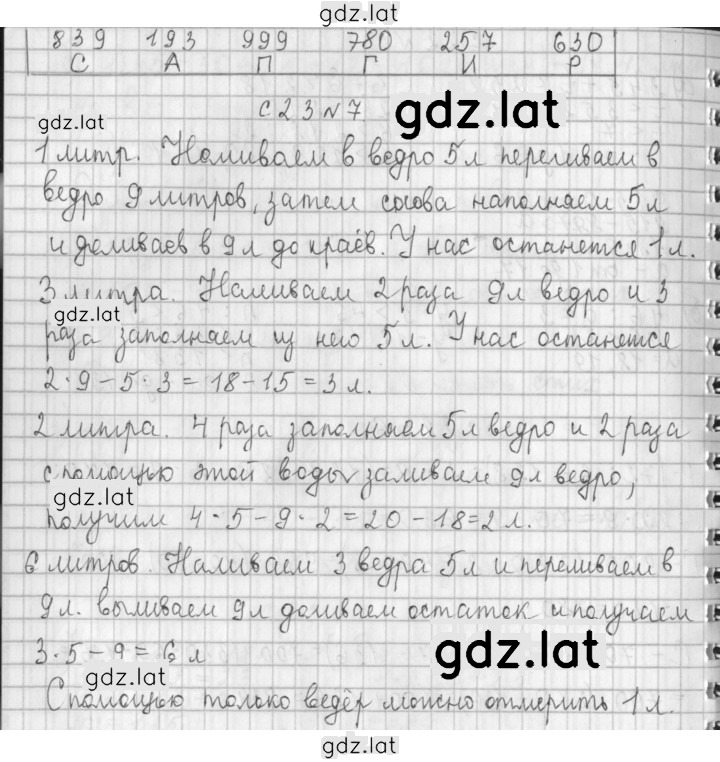 gdz.lat
839 193 999 780 257 630
С А П Г И Р
с 23 № 7
gdz.lat
gdz.lat
1 литр. Наливаем в ведро 5 л переливаем в
ведро 9 литров, затем снова наполняем 5 л
и доливаев в 9 л до краёв. У нас останется 1 л.
3 литра. Наливаем 2 раза 9 л ведро и 3
gdz.lat
раза заполняем из него 5 л. У нас останется
2·9-5·3=18-15=3 л.
2 литра. 4 раза заполняем 5 л ведро и 2 раза
с помощью этой воды заливаем 9 л ведро,
gdz.lat
получим 4·5-9·2=20-18=2 л.
6 литров. Наливаем 3 ведра 5 л и переливаем в
9 л. выливаем 9 л доливаем остаток и получаем
3·5-9=6 л
gdz.lat
gdz.lat
С помощью только ведёр можно отмерить 1 л.
gdz.lat